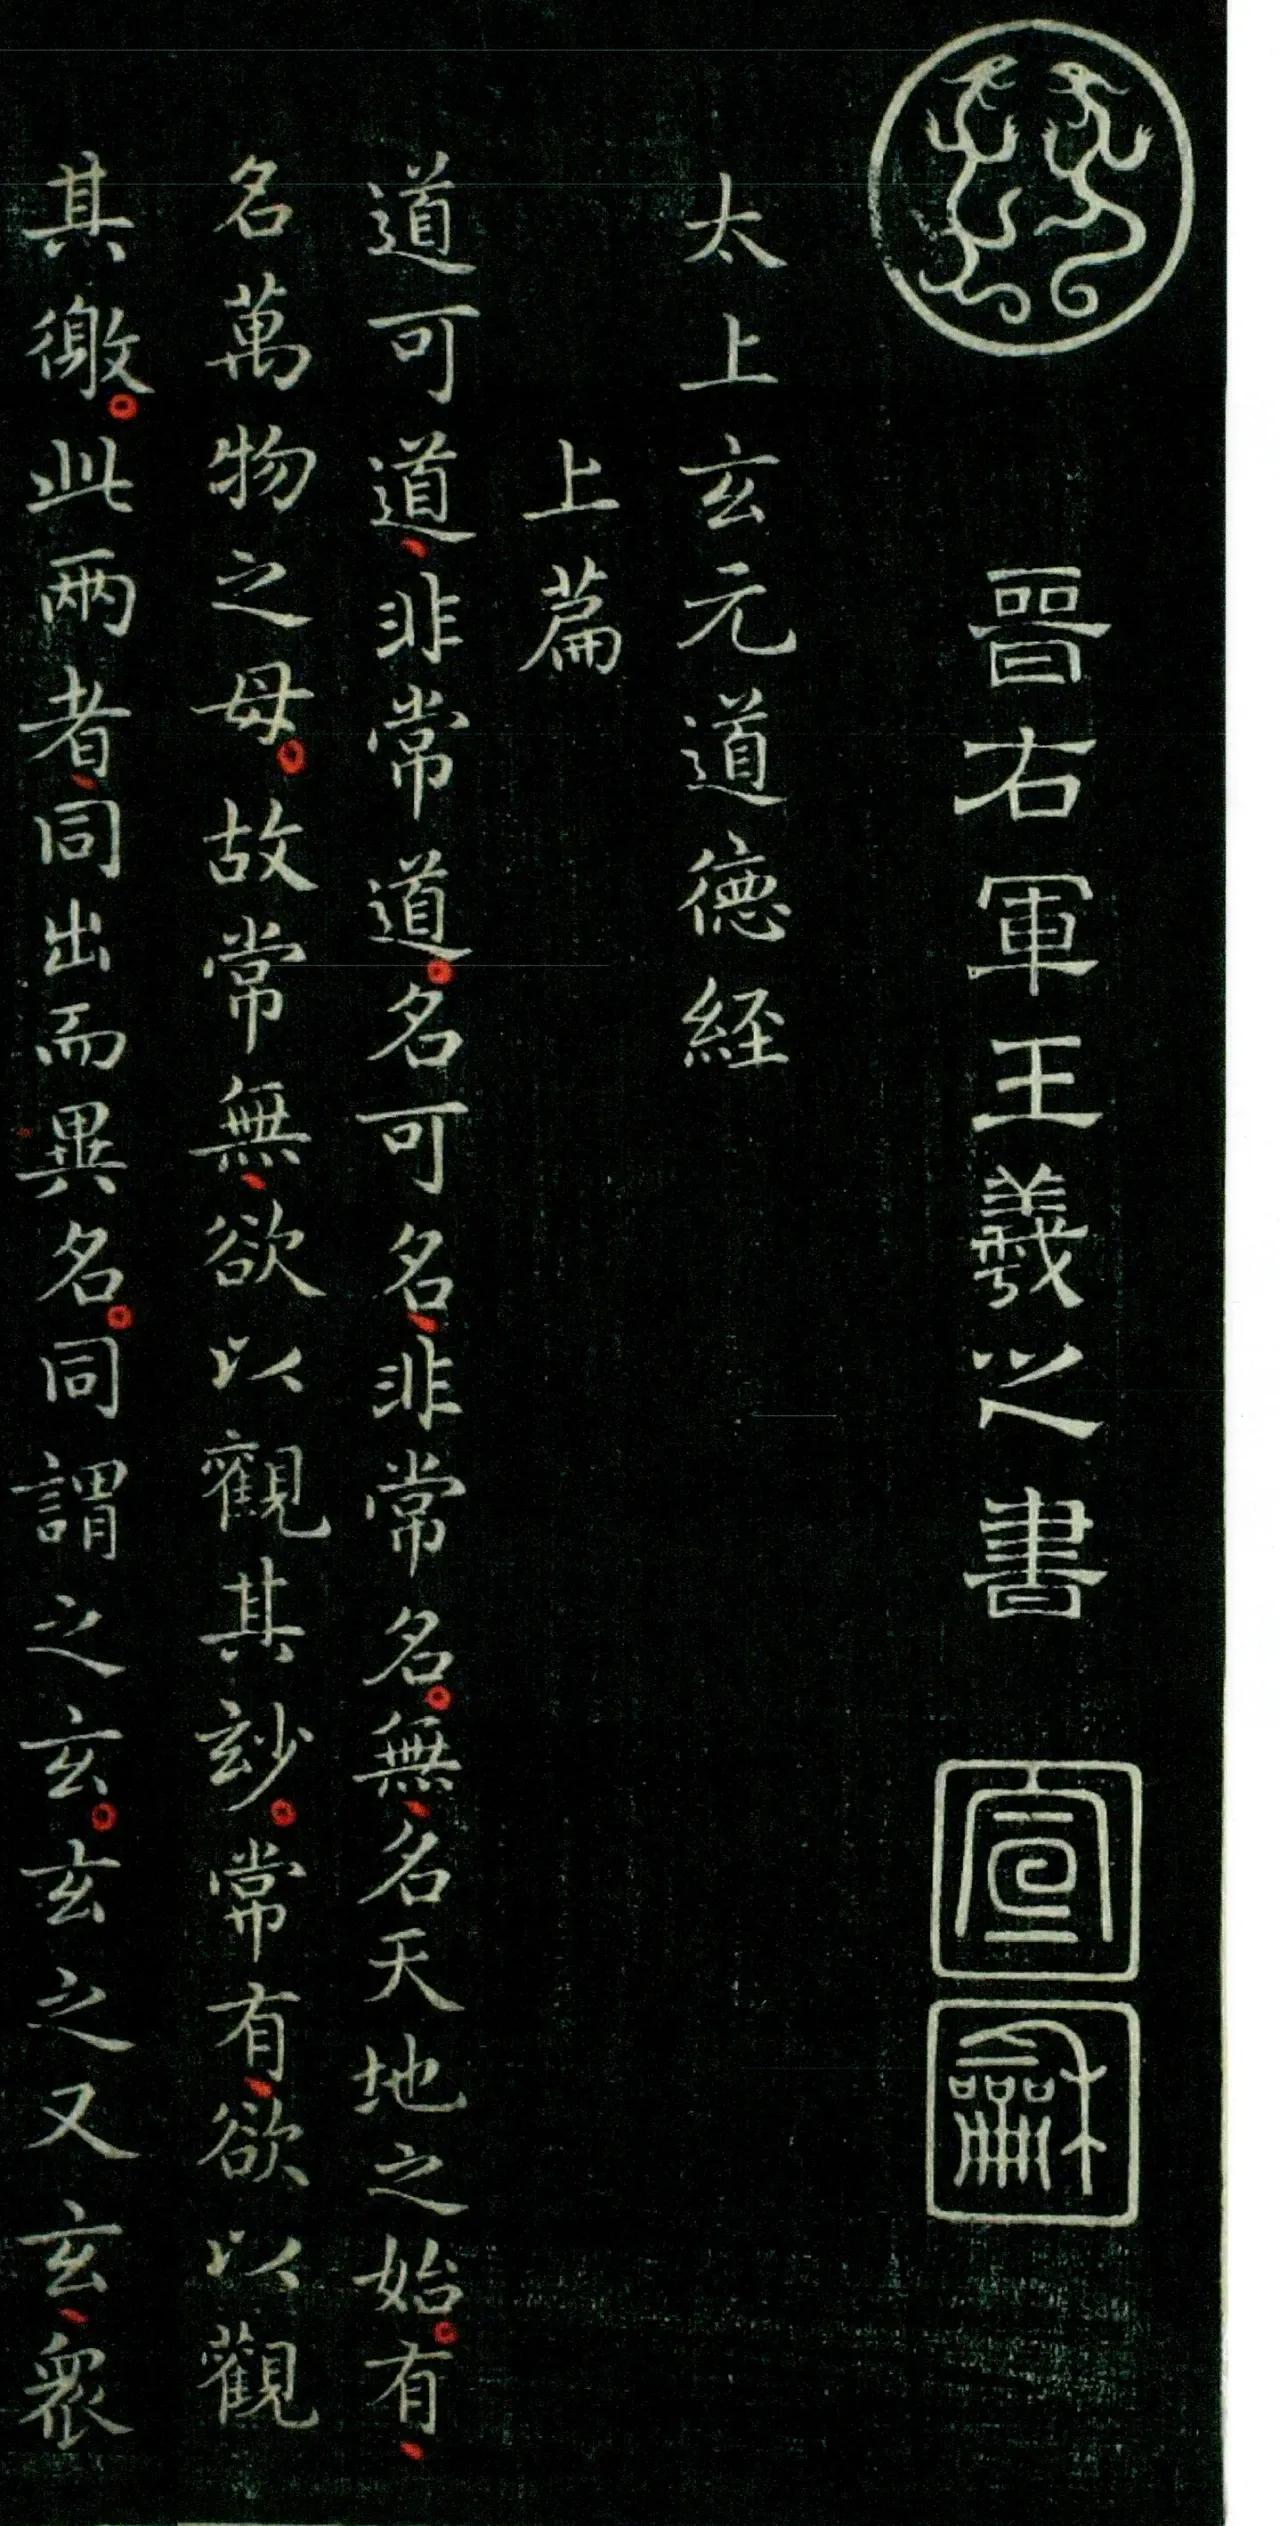 晉右軍王羲之書
宣
龢
太上玄元道德経
上篇
道可道、非常道。名可名、非常名。無、名天地之始。有、
名萬物之母。故常無、欲以觀其玅。常有、欲以觀
其徼。此兩者、同出而異名。同謂之玄。玄之又玄、衆